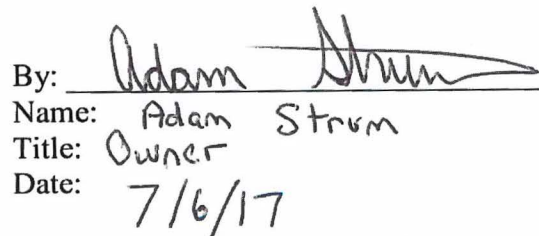 By: Adam Strum
Name: Adam Strum
Title: Owner
Date: 7/6/17